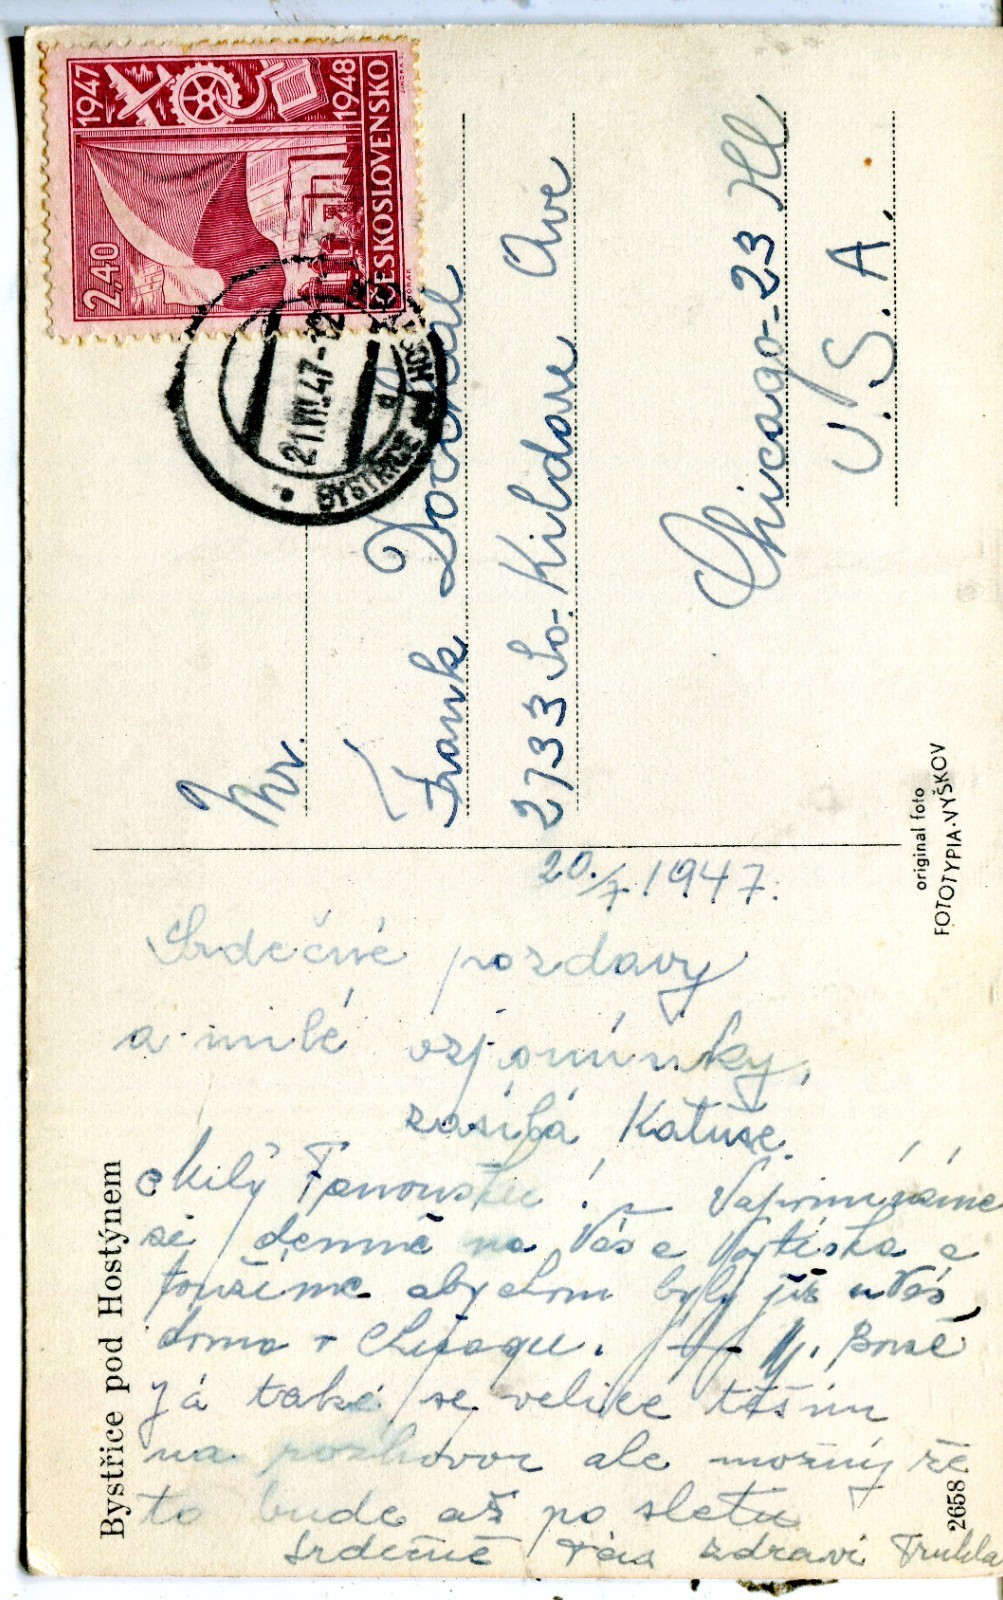 1947
1948
2,40
ČESKOSLOVENSKO
21.VII.47-12
BYSTŘICE pod HOST
Mr.
Frank Dočkal
2733 So. Kildare Ave
Chicago-23 Ill
U.S.A.
original foto
FOTOTYPIA-VYŠKOV
20./7.1947.
Srdečné pozdavy
a milé vzpomínky,
zasílá Katuše.
Milý Fanoušku! Vzpomínáme
si denně na Vás a Vojtíška a
toužíme abychom byly již u Vás
doma v Chicagu.
Já také se velice těším
na rozhovor ale možný že
to bude až po sletu
Srdečně Vás zdraví
Bystřice pod Hostýnem
2658